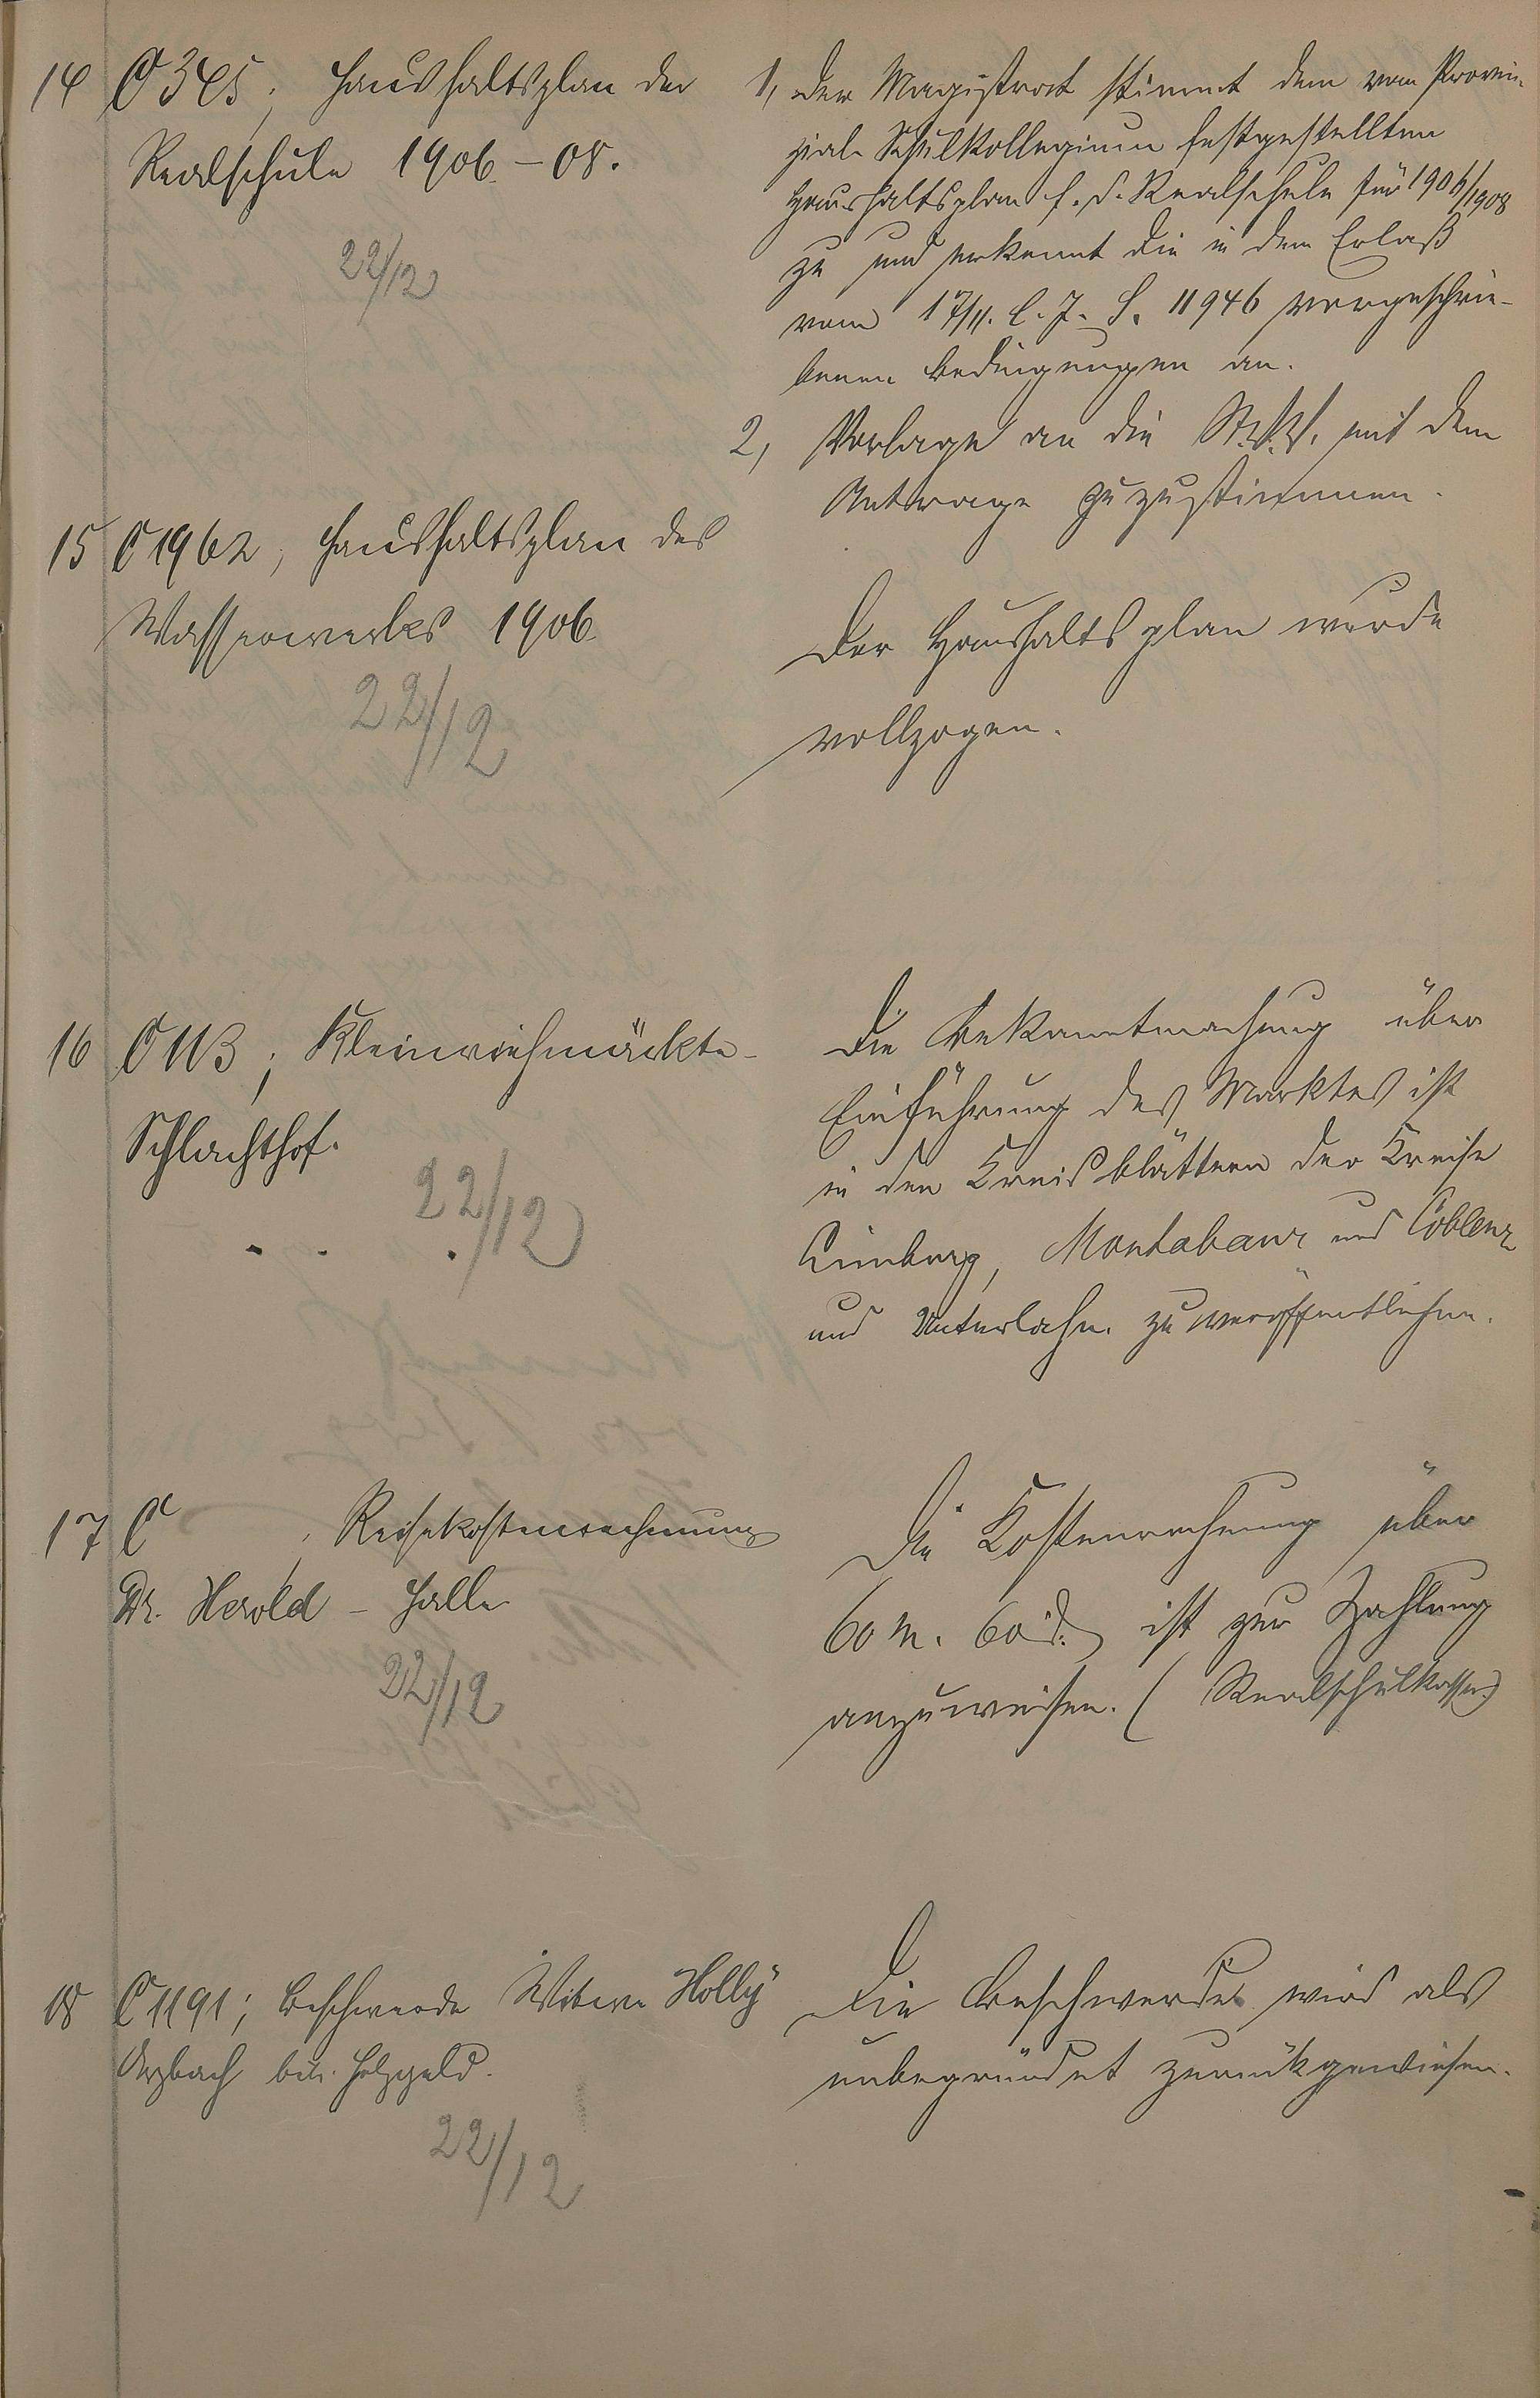 14 C 345; Haushaltsplan der
Realschule 1906-08.
22/12
1, Der Magistrat stimmt dem vom Provin-
zial-Schulkollegium festgestellten
Haushaltsplan f. d. Realschule für 1906/1908
zu und erkennt die in dem Erlaß
vom 17/11. l. J. S. 11946 vorgeschrie-
benen Bedingungen an.
2, Vorlage an die St.V.V. mit dem
Antrage zuzustimmen.
15 C 1962; Haushaltsplan des
Wasserwerkes 1906
22/12
Der Haushaltsplan wurde
vollzogen.
16 C 113; Kleinviehmärkte-
Schlachthof.
22/12
Die Bekanntmachung über
Einführung des Marktes ist
in den Kreisblättern der Kreise
Limburg, Montabaur und Coblenz
und Unterlahn zu veröffentlichen.
17 C , Reisekostenrechnung
Dr. Herold - Halle
22/12
Die Kostenrechnung über
60 M. 60 d. ist zur Zahlung
anzuweisen. (Realschulkasse)
18 C 1191; Beschwerde Witwe Holly
Arzbach betr. Holzgeld.
22/12
Die Beschwerde wird als
unbegründet zurückgewiesen.